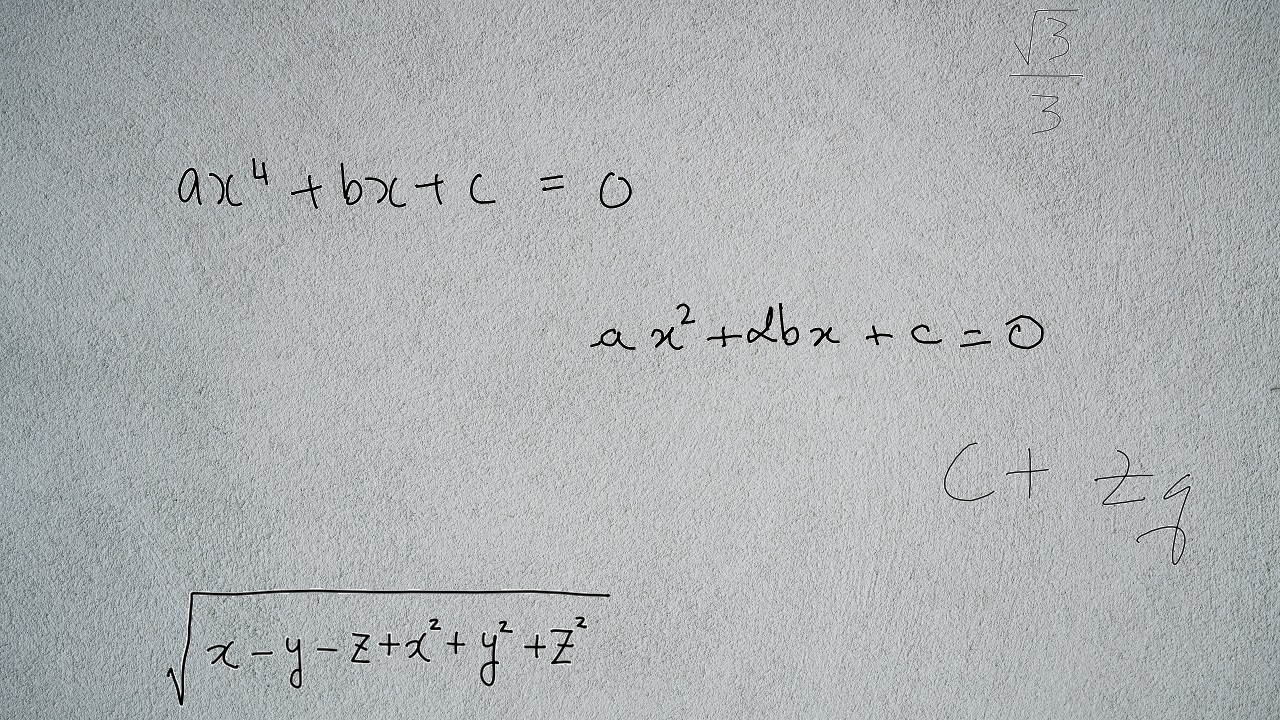 √3/3
ax⁴ + bx + c = 0
ax² + 2bx + c = 0
C + z_g
√(x - y - z + x² + y² + z²)